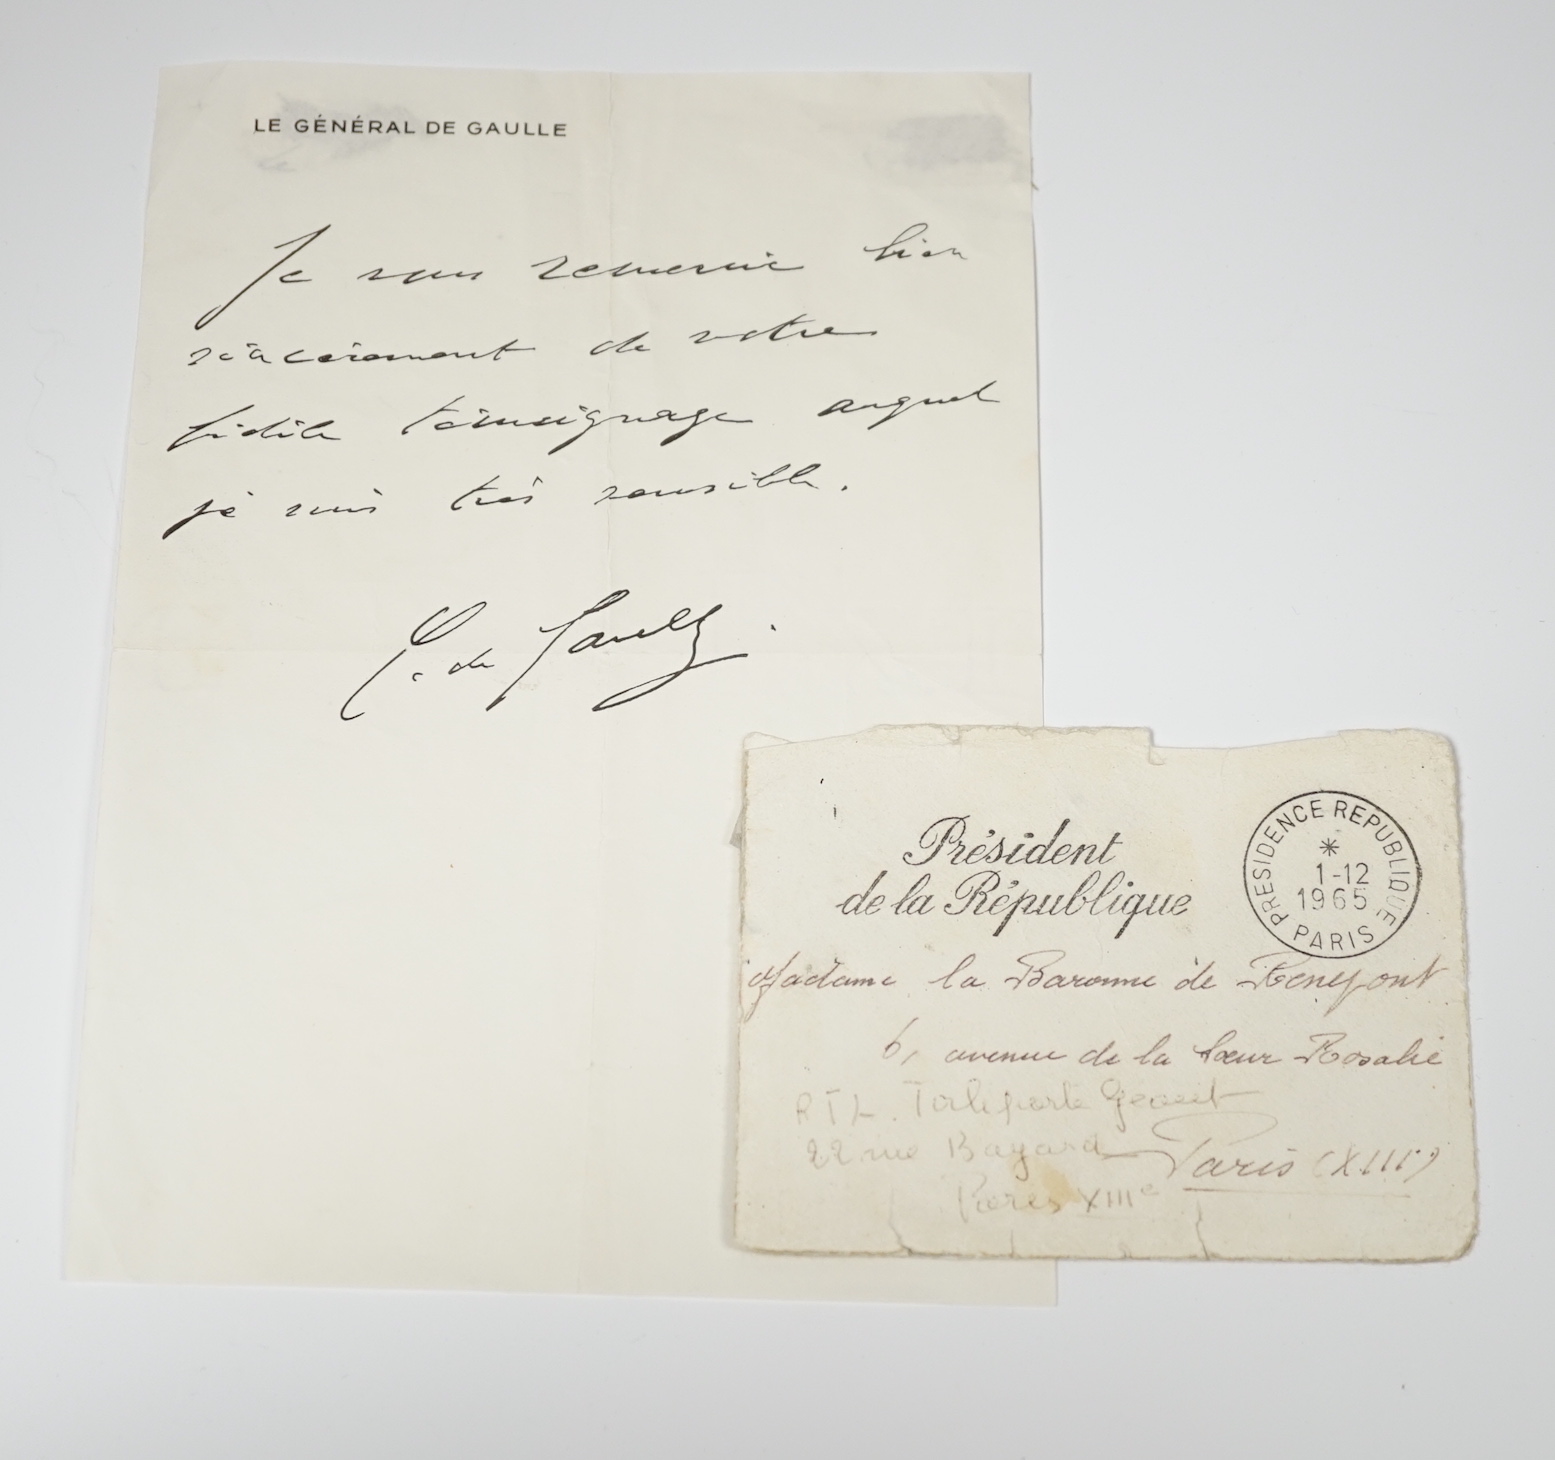 LE GÉNÉRAL DE GAULLE
Je vous remercie bien
sincèrement de votre
fidèle témoignage auquel
je suis très sensible.
C. de Gaulle.
Président
de la République
PRESIDENCE REPUBLIQUE
1-12
1965
PARIS
Madame la Baronne de
6, avenue de la Sœur Rosalie
RTL.
22 rue Bayard
Paris (XIII)
Paris XIIIe